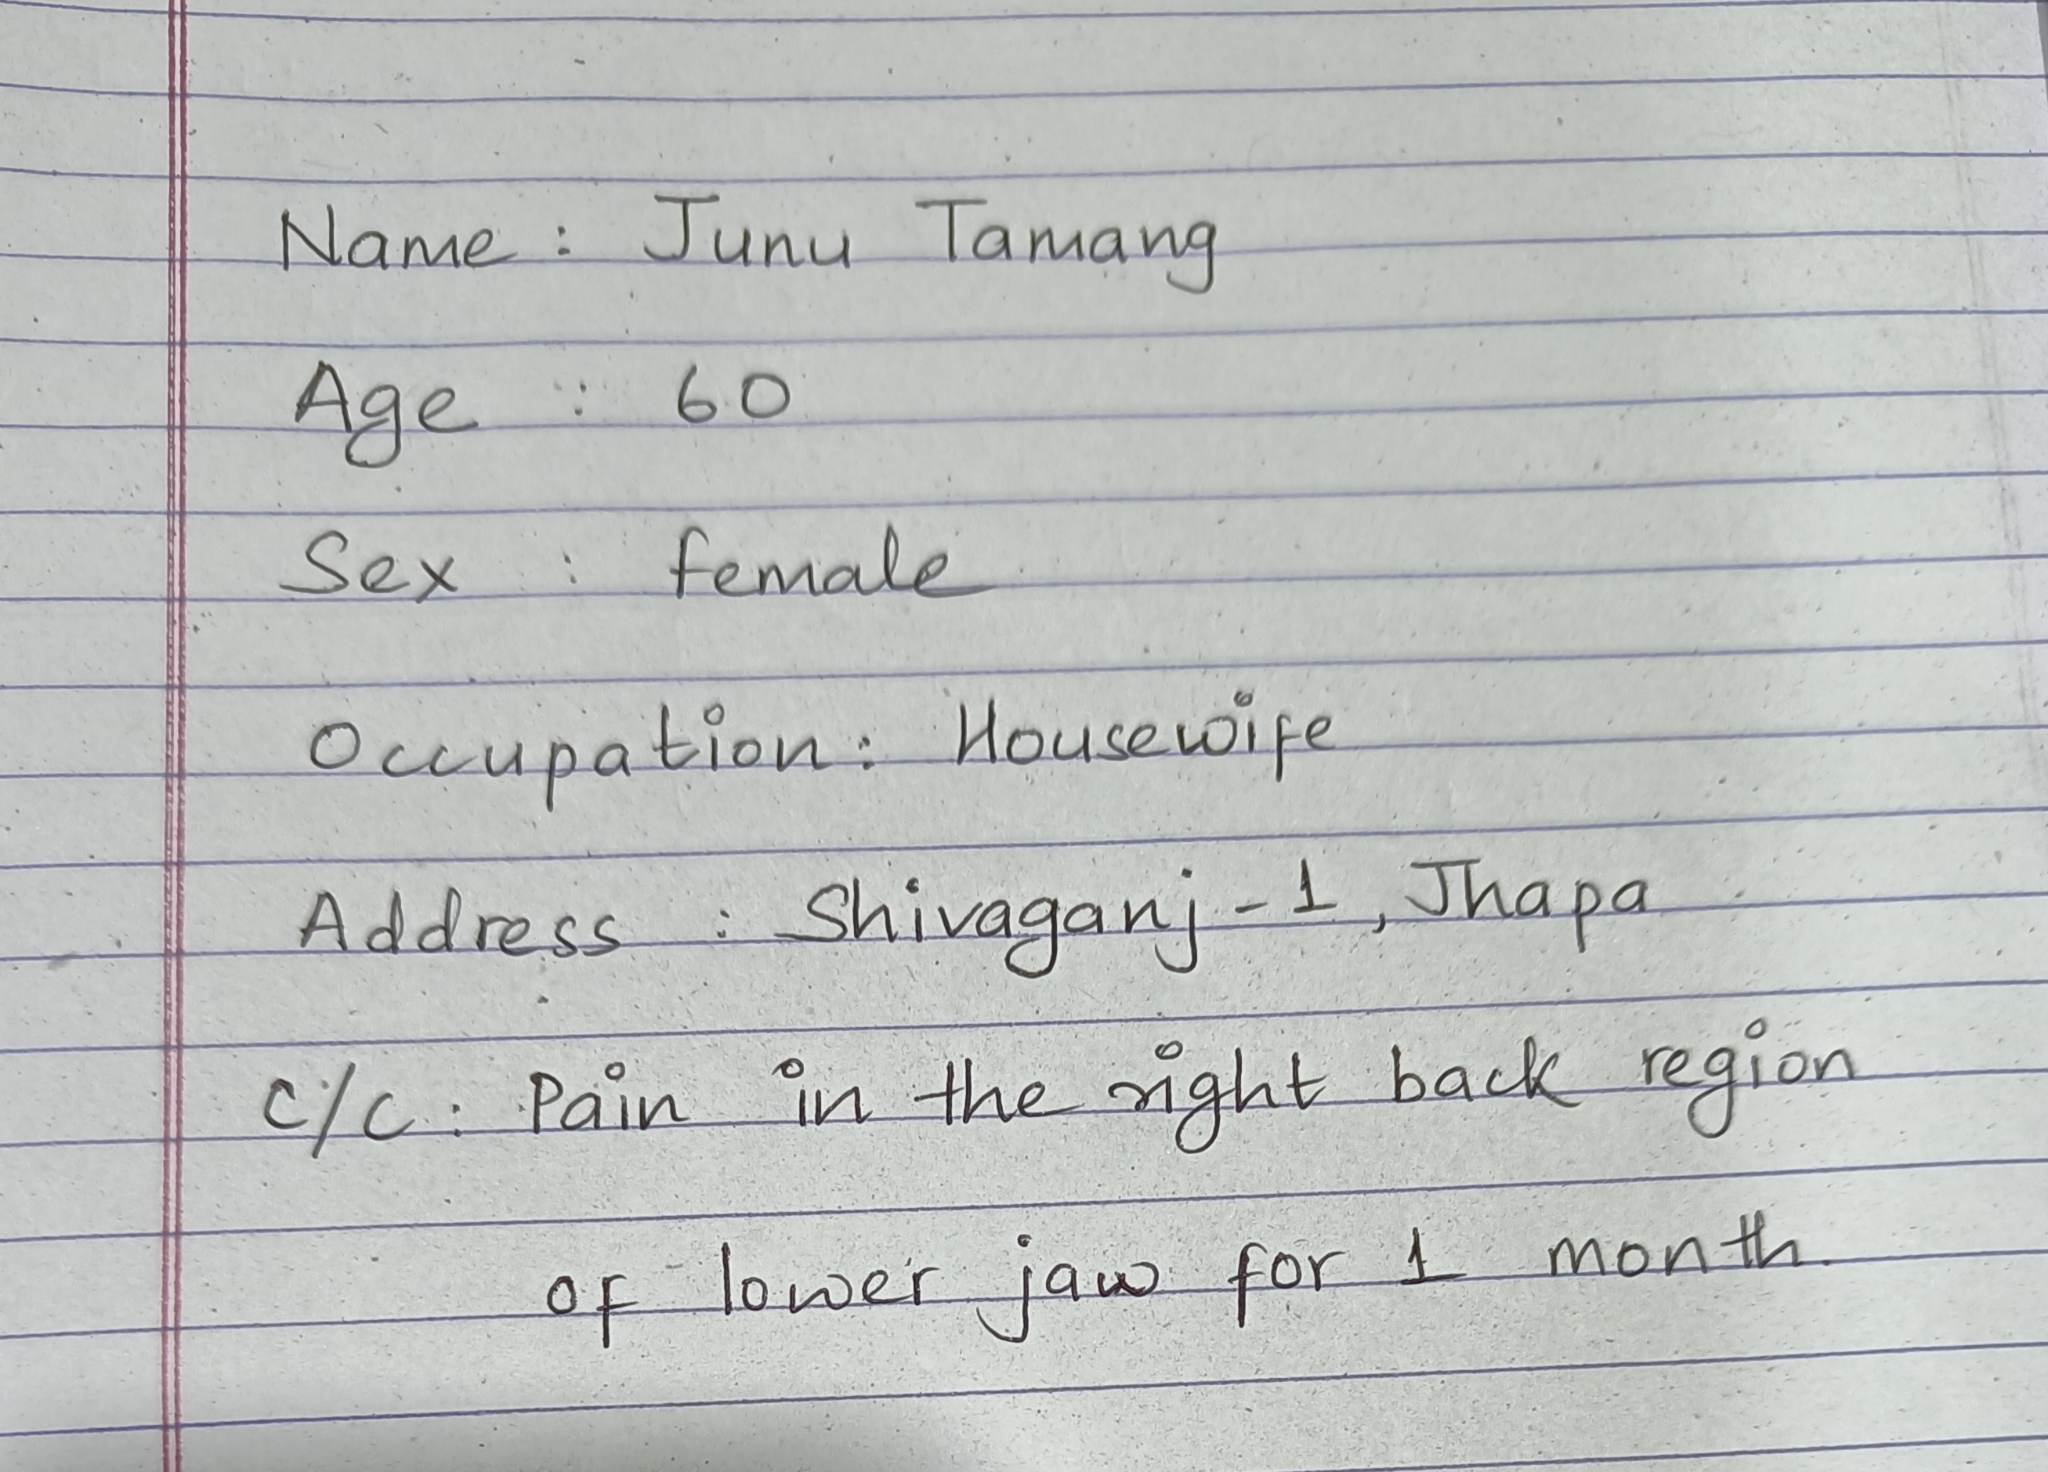 Name : Junu Tamang
Age : 60
Sex : female
Occupation : Housewife
Address : Shivaganj - 1, Jhapa
C/C : Pain in the right back region
of lower jaw for 1 month.